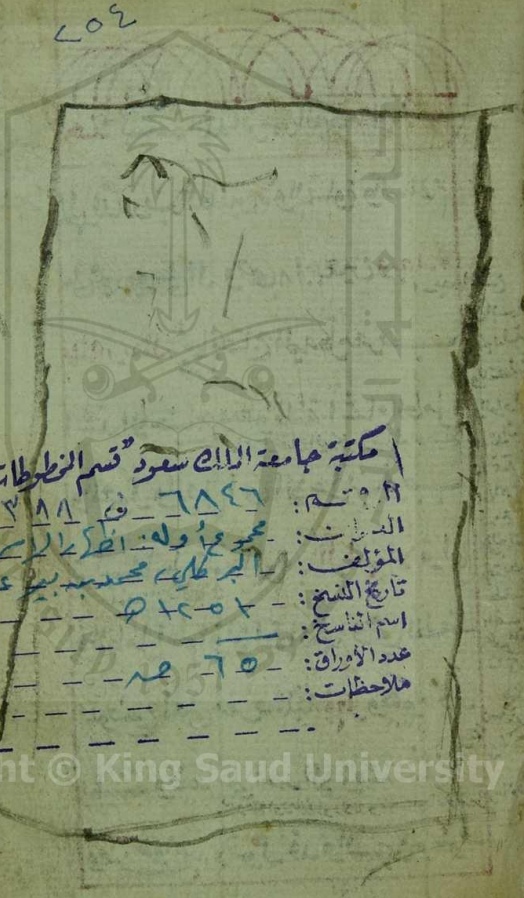 ٢٥٤
مكتبة جامعة الملك سعود "قسم المخطوطات
الرقم: ٦٨٤٦ ف ٣ ٨٨
العنوان: مجموع أوله: اظهار
المؤلف: البركلي، محمد بن بير
تاريخ النسخ: ١٢٥٢ هـ
اسم الناسخ:
عدد الأوراق: ٦٥ ص
ملاحظات:
© King Saud University